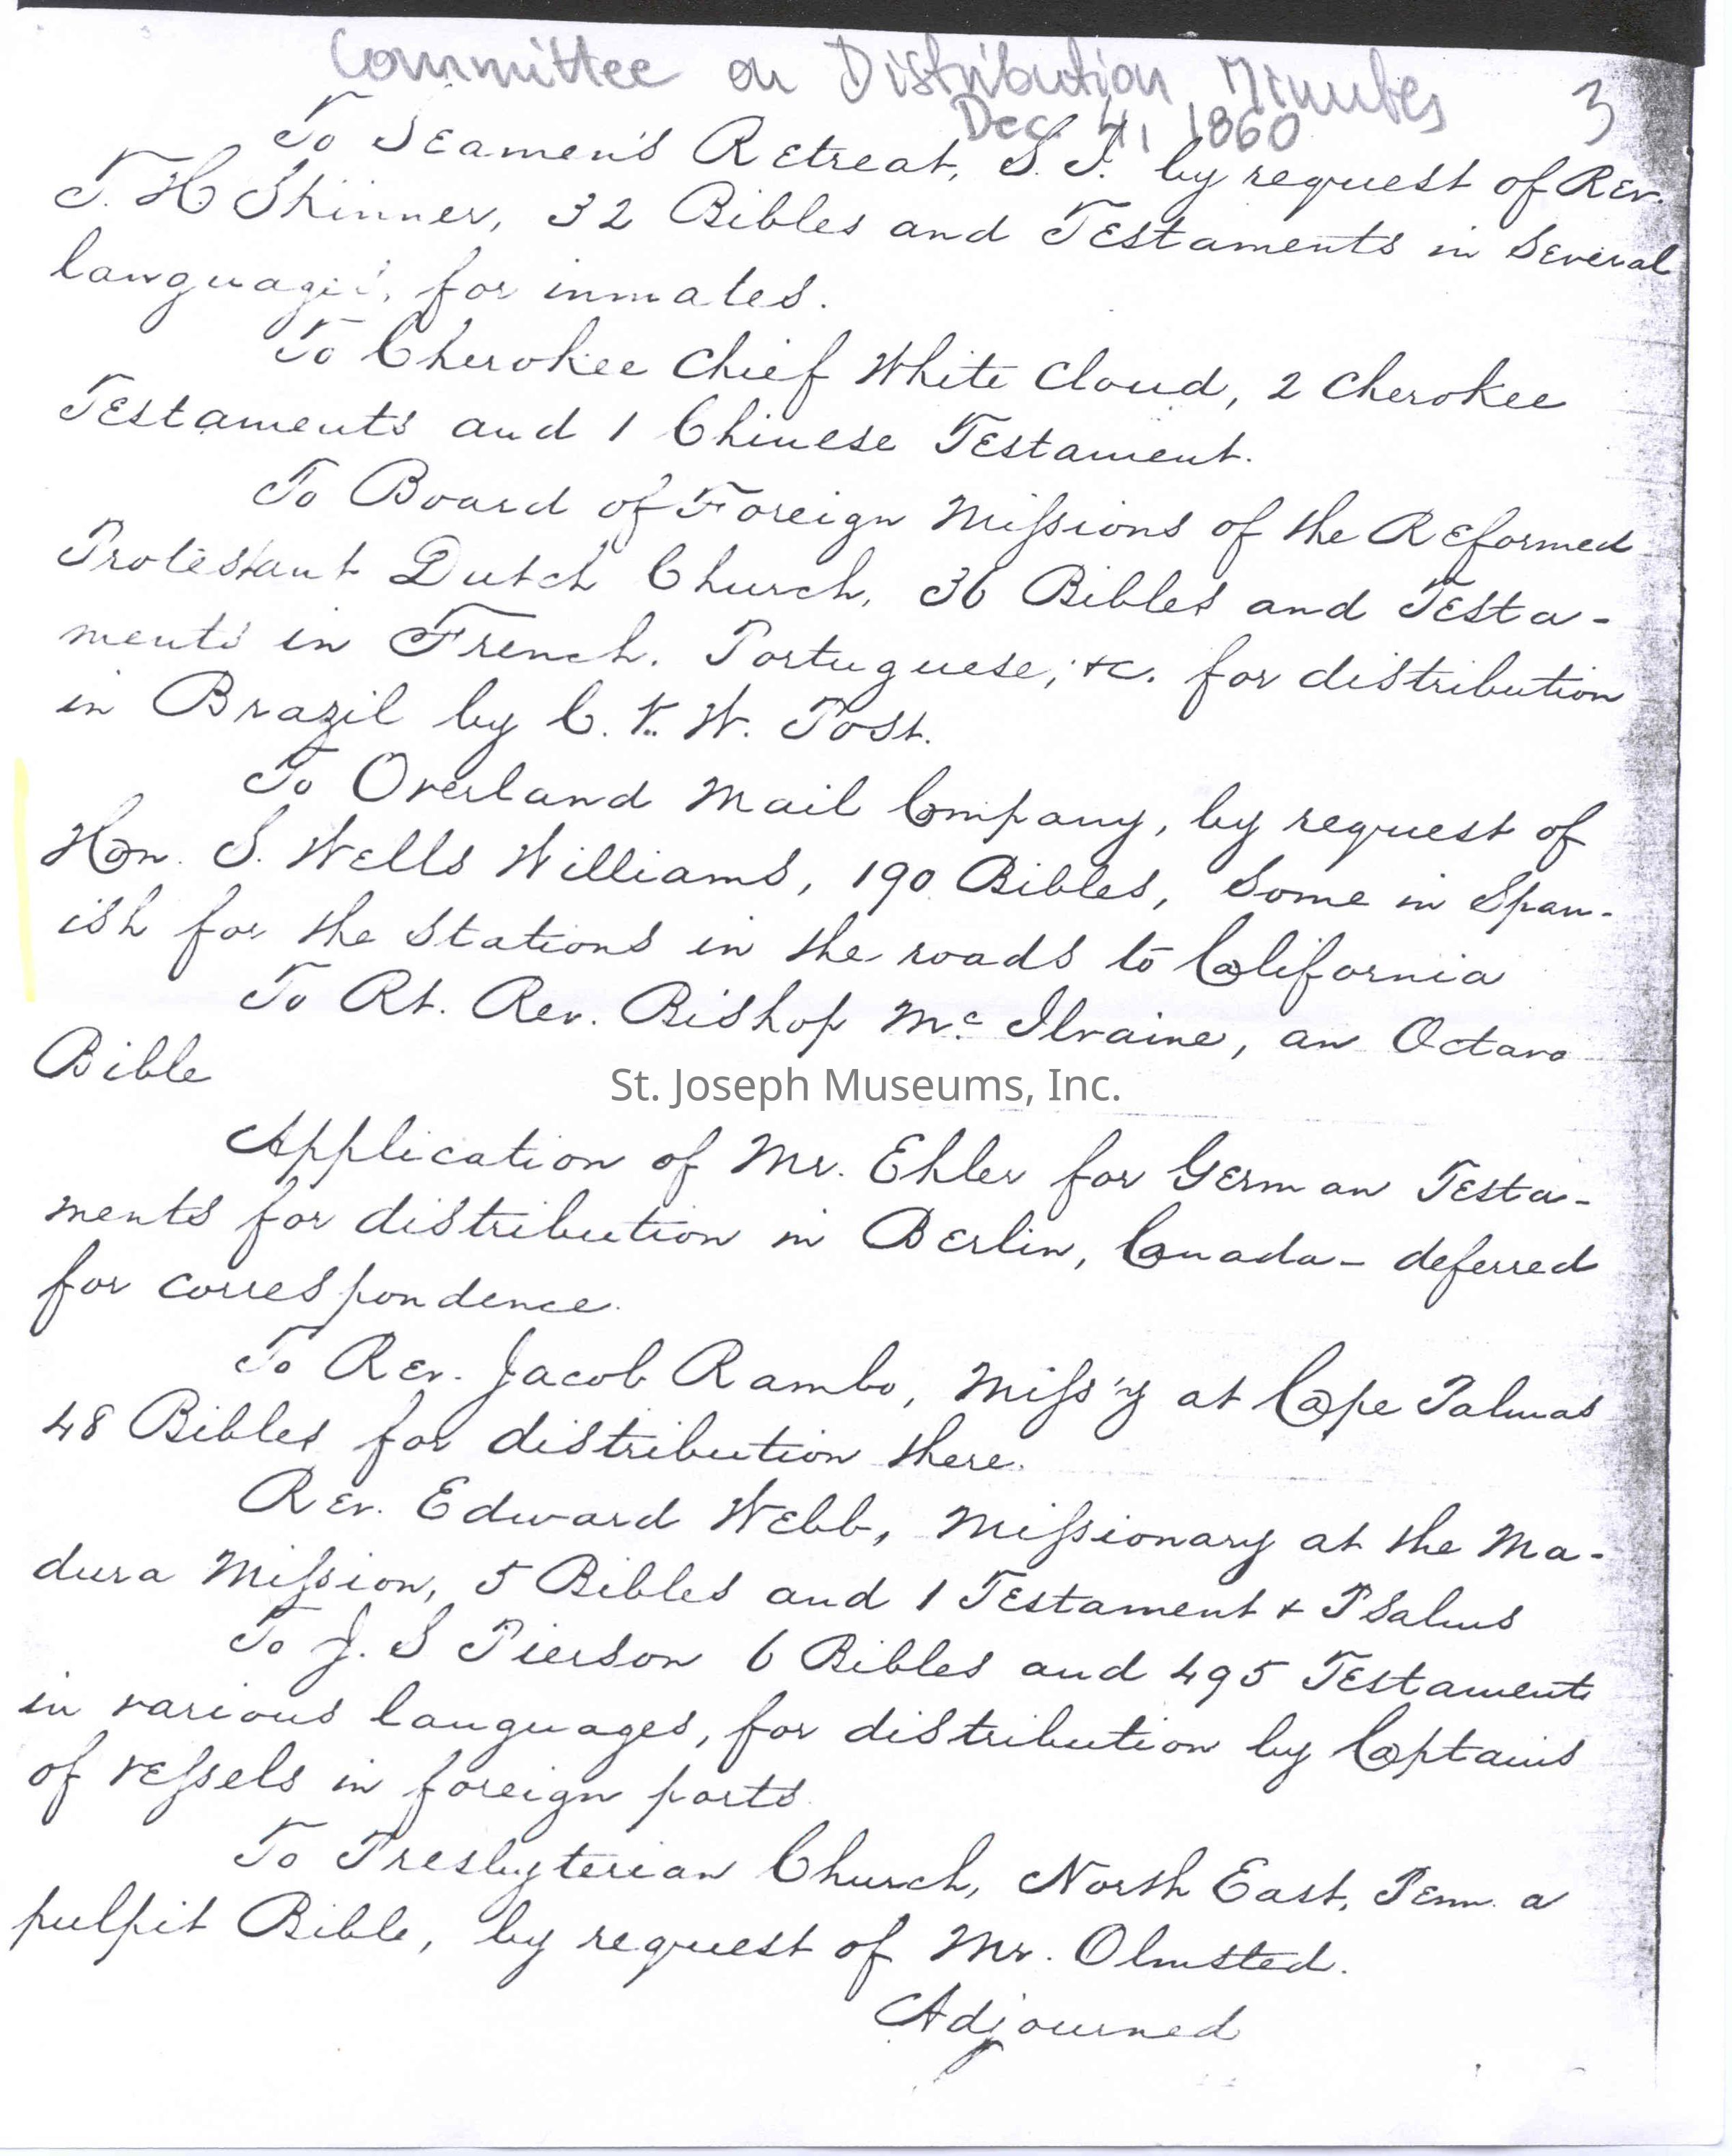 Committee on Distribution Minutes
Dec. 4, 1860
3
To Seamen's Retreat, S. I. by request of Rev.
T. H Skinner, 32 Bibles and Testaments in several
languages, for inmates.
To Cherokee Chief White Cloud, 2 Cherokee
Testaments and 1 Chinese Testament.
To Board of Foreign Missions of the Reformed
Protestant Dutch Church, 36 Bibles and Testa-
ments in French, Portuguese, &c. for distribution
in Brazil by C. V. W. Post.
To Overland Mail Company, by request of
Hon. S. Wells Williams, 190 Bibles, some in Span-
ish for the stations in the roads to California
To Rt. Rev. Bishop Mc Ilvaine, an Octavo
Bible
St. Joseph Museums, Inc.
Application of Mr. Ehler for German Testa-
ments for distribution in Berlin, Canada - deferred
for correspondence.
To Rev. Jacob Rambo, Miss'y at Cape Palmas
48 Bibles for distribution there.
Rev. Edward Webb, Missionary at the Ma-
dura Mission, 5 Bibles and 1 Testament & Psalms
To J. S Pierson 6 Bibles and 495 Testaments
in various languages, for distribution by Captains
of vessels in foreign ports
To Presbyterian Church, North East, Penn. a
pulpit Bible, by request of Mr. Olmsted.
Adjourned